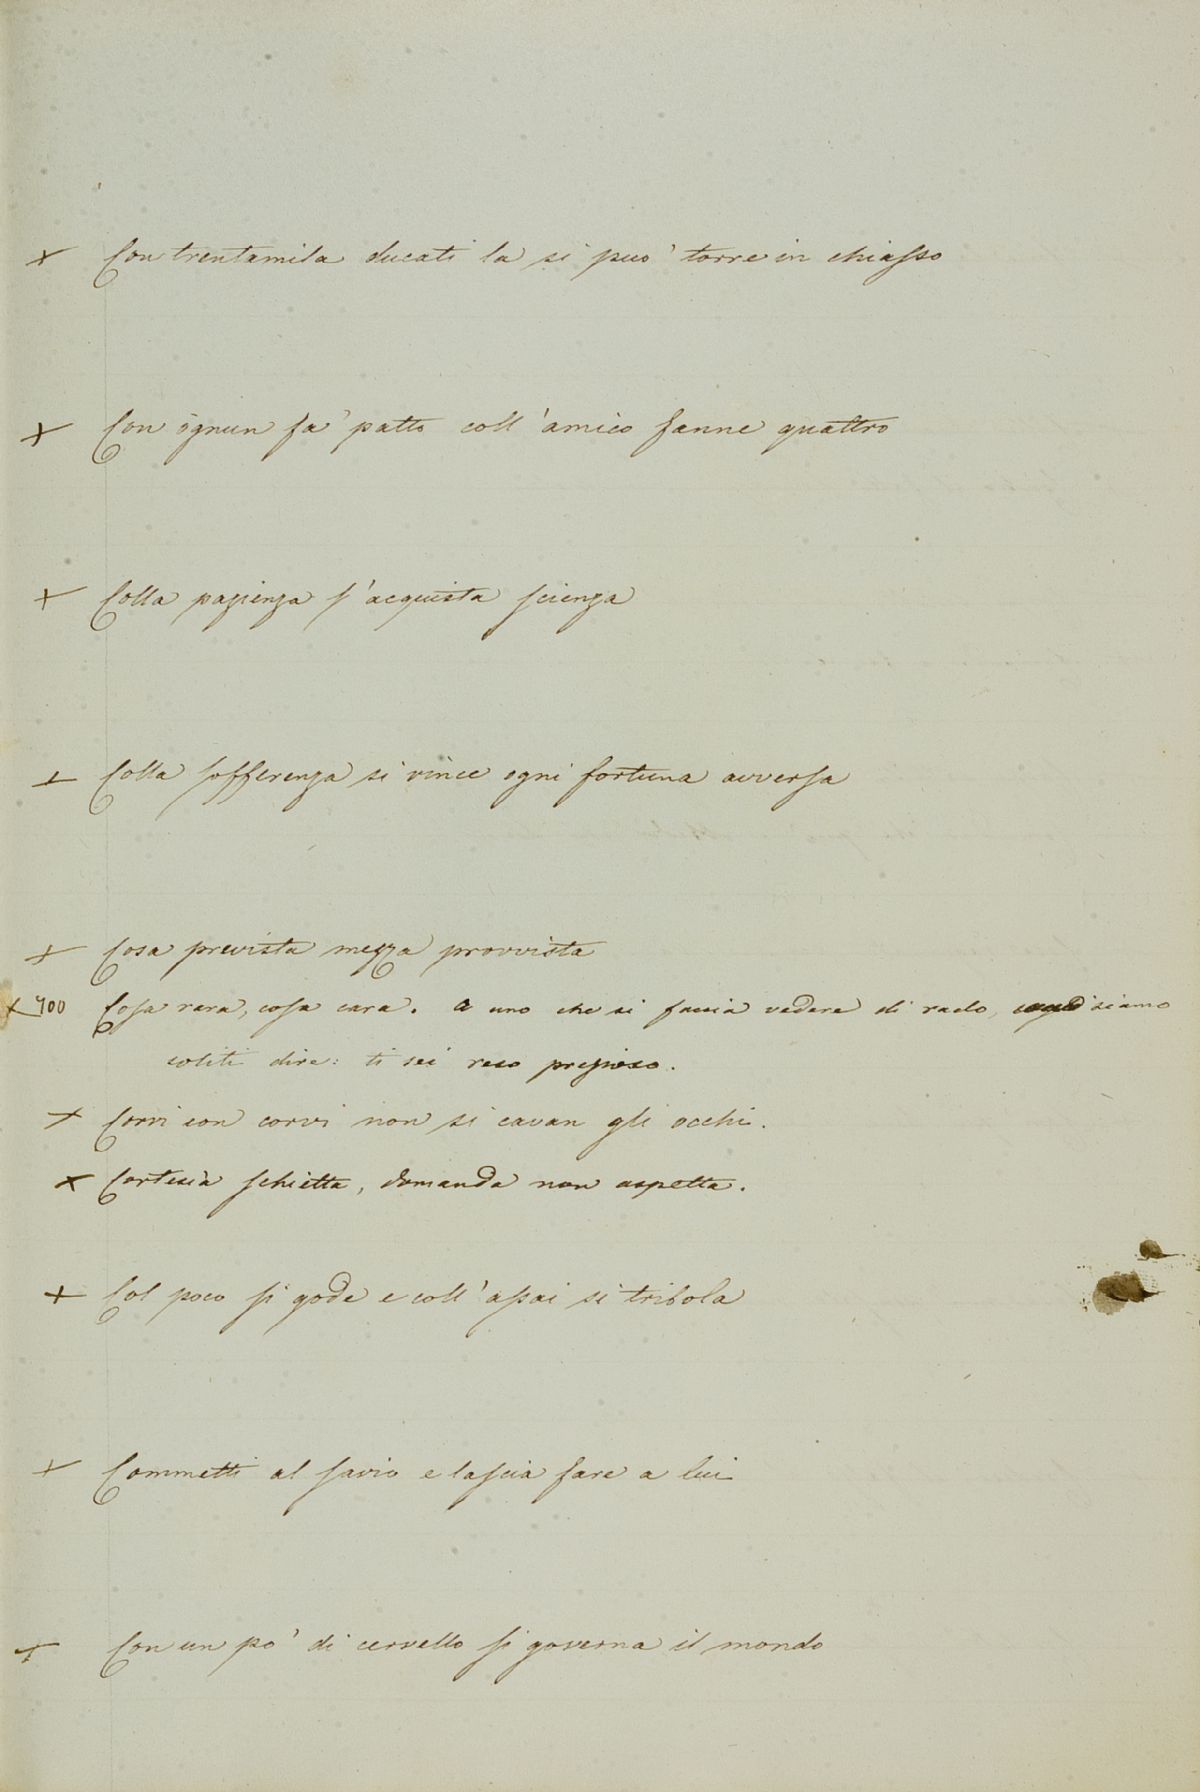 × Con trentamila ducati la si può torre in chiasso
× Con ognun fa' patto coll'amico fanne quattro
× Colla pazienza s'acquista scienza
× Colla sofferenza si vince ogni fortuna avversa
× Cosa prevista mezza provvista
× 400 Cosa rara, cosa cara. a uno che si faccia vedere di rado, siamo
soliti dire: ti sei reso prezioso.
× Corvi con corvi non si cavan gli occhi.
× Cortesia schietta, domanda non aspetta.
× Col poco si gode e coll'assai si tribola
× Commetti al savio e lascia fare a lui
× Con un po' di cervello si governa il mondo